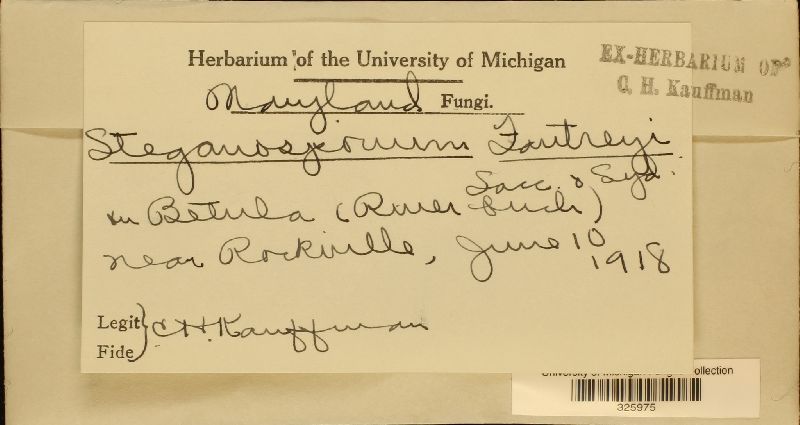 Herbarium of the University of Michigan
EX-HERBARIUM OF
C. H. Kauffman
Maryland Fungi.
Steganosporium Fautreyi
Sacc. & Syd.
on Betula (River birch)
near Rockville, June 10
1918
Legit
Fide
C.H. Kauffman
University of Michigan Collection
325975